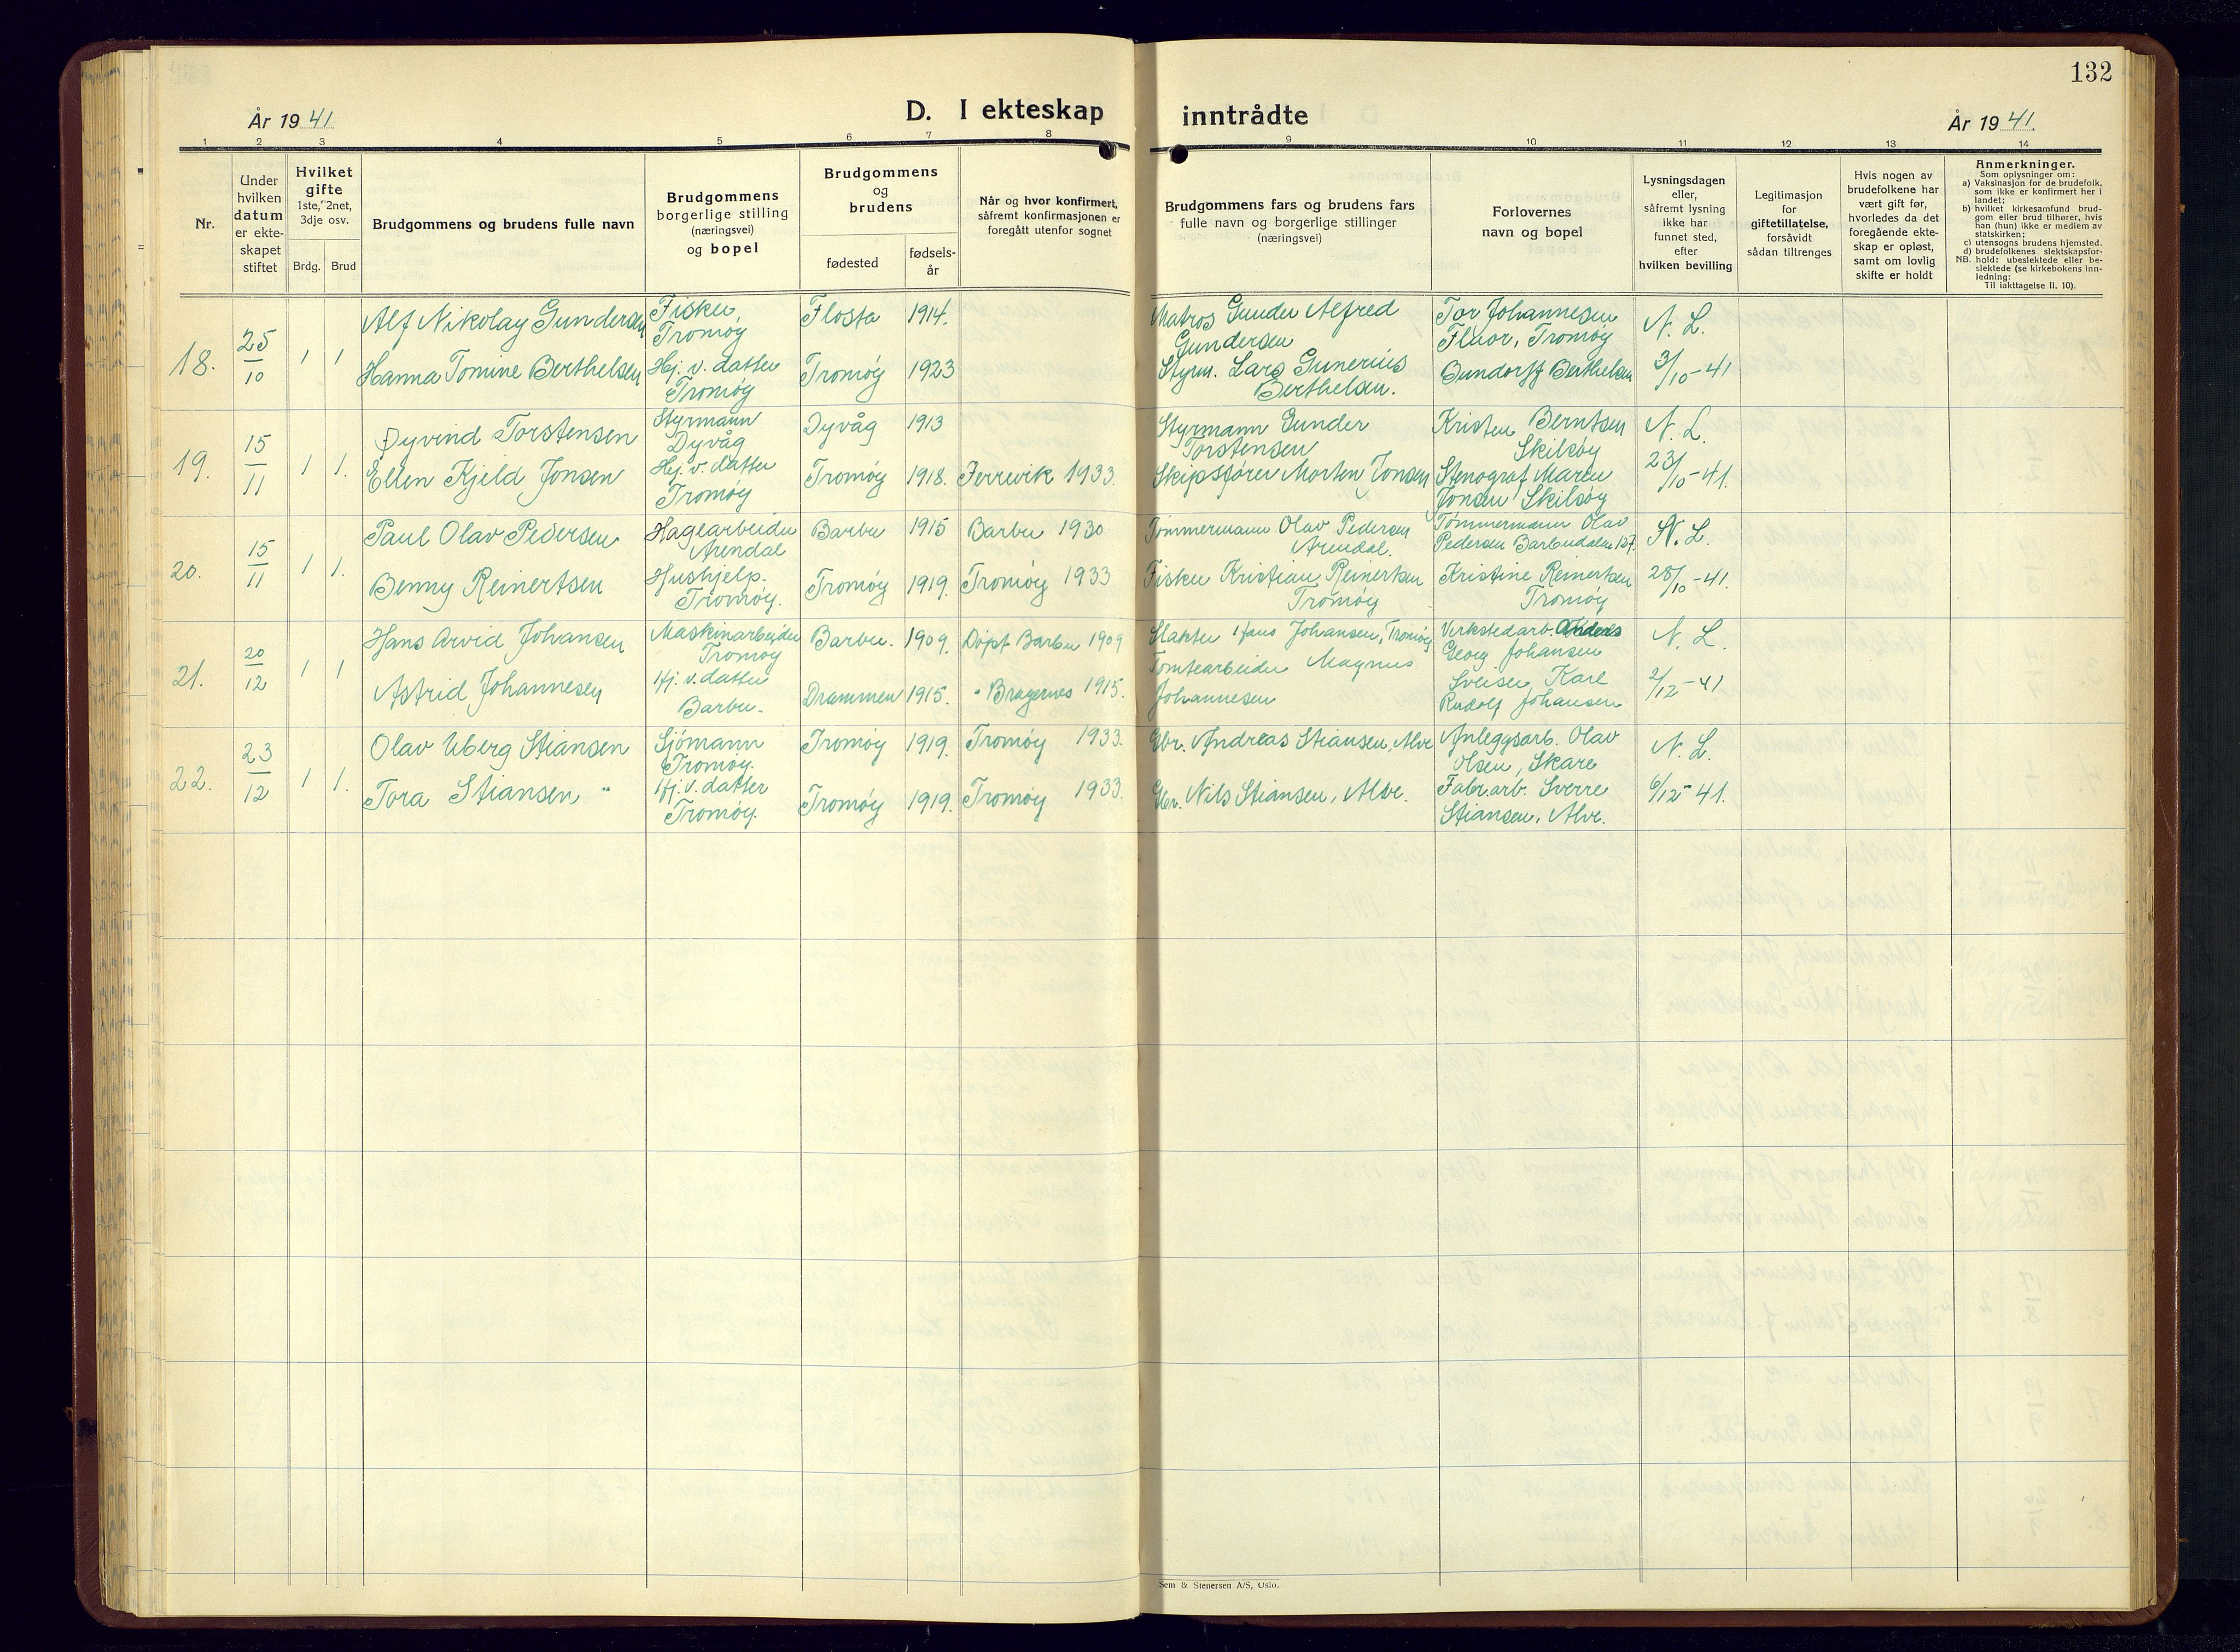 132
År 1941.
D. I ekteskap inntrådte
År 1941.
1 2 3 4 5 6 7 8 9 10 11 12 13 14
Nr.
Under hvilken datum er ekte-skapet stiftet
Hvilket gifte
1ste, 2net, 3dje osv.
Brdg. Brud
Brudgommens og brudens fulle navn
Brudgommens
borgerlige stilling
(næringsvei)
og bopel
Brudgommens
og
brudens
fødested
fødsels-
år
Når og hvor konfirmert,
såfremt konfirmasjonen er
foregått utenfor sognet
Brudgommens fars og brudens fars
fulle navn og borgerlige stillinger
(næringsvei)
Forlovernes
navn og bopel
Lysningsdagen
eller,
såfremt lysning
ikke har
funnet sted,
efter
hvilken bevilling
Legitimasjon
for
giftetillatelse,
forsåvidt
sådan tiltrenges
Hvis nogen av
brudefolkene har
vært gift før,
hvorledes da det
foregående ekte-
skap er opløst,
samt om lovlig
skifte er holdt
Anmerkninger.
Som oplysninger om:
a) Vaksinasjon for de brudefolk,
som ikke er konfirmert her i
landet;
b) hvilket kirkesamfund brud-
gom eller brud tilhører, hvis
han (hun) ikke er medlem av
statskirken;
c) utensogns brudens hjemsted.
d) brudefolkenes slektskapsfor-
NB. hold: ubeslektede eller be-
slektede (se kirkebokens inn-
ledning:
Til iakttagelse II. 10).
18. 25/10 1 1
Alf Nikolay Gundersen Fisker, Tromøy Flosta 1914. Matros Gunder Alfred Gundersen Tor Johannesen Fluor, Tromøy N. L.
Hanna Tomine Berthelsen Hj. v. datter Tromøy Tromøy 1923 Styrm. Lars Gunerius Berthelsen. Berthelsen 3/10-41
19. 15/11 1 1.
Øyvind Torstensen Styrmann Dyvåg Dyvåg 1913 Styrmann Gunder Torstensen Kristen Berntsen Skilsøy N. L.
Ellen Kjeld Jonsen Hj. v. datter Tromøy Tromøy 1918. Færvik 1933. Skipsfører Morten Jonsen Stenograf Maren Jonsen Skilsøy 23/10-41.
20. 15/11 1 1.
Paul Olav Pedersen Hagearbeider Arendal Barbu 1915 Barbu 1930 Tømmermann Olav Pedersen Arendal. Tømmermann Olav Pedersen Barbudalen 127. N. L.
Benny Reinertsen Hushjelp. Tromøy. Tromøy 1919. Tromøy 1933 Fisker Kristian Reinertsen Tromøy Kristine Reinertsen Tromøy 28/10-41.
21. 20/12 1 1
Hans Arvid Johansen Maskinarbeider Tromøy Barbu. 1909. Døpt Barbu 1909 Slakter Hans Johansen, Tromøy Verkstedarb. Anders Georg Johansen N. L.
Astrid Johannesen Hj. v. datter Barbu. Drammen 1915. " Bragernes 1915. Tomtearbeider Magnus Johannesen Sveiser Karl Rudolf Johansen 2/12-41
22. 23/12 1 1.
Olav Uberg Stiansen Sjømann Tromøy. Tromøy 1919. Tromøy 1933. Gbr. Andreas Stiansen, Alve Anleggsarb. Olav Olsen, Skare N. L.
Tora Stiansen " Hj. v. datter Tromøy. Tromøy 1919. Tromøy 1933. Gbr. Nils Stiansen, Alve. Fabr.arb. Sverre Stiansen, Alve. 6/12-41.
Sem & Stenersen A/S, Oslo.